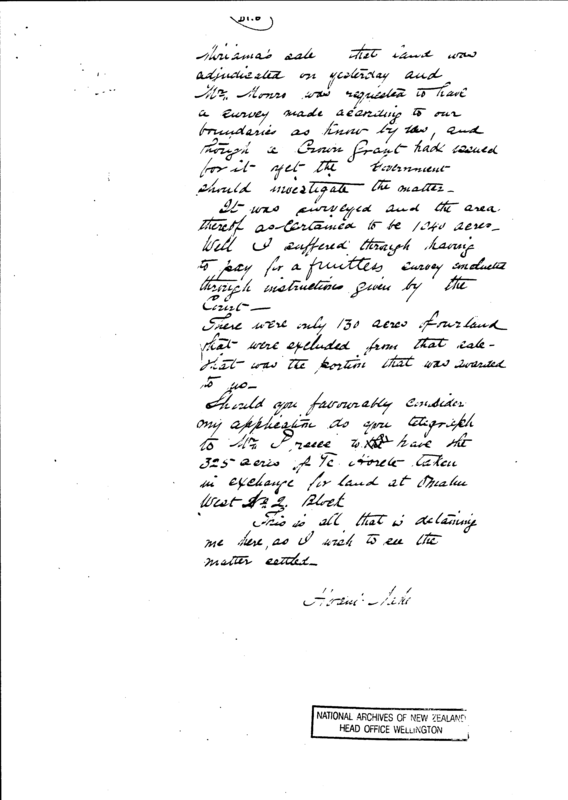 D1.8
Miriama's sale that land was
adjudicated on yesterday and
Mr. Monro was requested to have
a survey made according to our
boundaries as know by us, and
though a Crown Grant had issued
for it yet the Government
should investigate the matter -
It was surveyed and the area
thereof ascertained to be 1040 acres -
Well I suffered through having
to pay for a fruitless survey conducted
through instructions given by the
Court -
There were only 130 acres of our land
that were excluded from that sale -
that was the portion that was awarded
to us -
Should you favourably consider
my application do you telegraph
to Mr. Preece to have the
325 acres of Te taken
in exchange for land at Omahu
West No. 2 Block
This is all that is detaining
me here, as I wish to see the
matter settled -
NATIONAL ARCHIVES OF NEW ZEALAND
HEAD OFFICE WELLINGTON